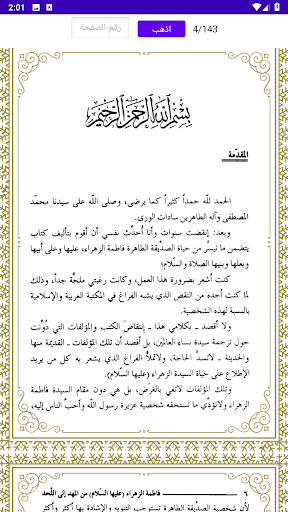 2:01
رقم الصفحة
اذهب
4/143
بسم الله الرحمن الرحيم
المقدّمة
الحمد للّه حمداً كثيراً كما يرضى، وصلى اللّه على سيدنا محمّد
المصطفى وآله الطاهرين سادات الورى.
وبعد: إنقضت سنوات وأنا أُحدّث نفسي أن أقوم بتأليف كتاب
يتضمن ما تيسَّر من حياة الصدِّيقة الطاهرة فاطمة الزهراء، عليها وعلى أبيها
وبعلها وبنيها الصلاة والسّلام؛
كنت أشعر بضرورة هذا العمل، وكانت رغبتي ملحَّة جداً، وذلك
لما كنت أجده من النقص الذي يشبه الفراغ في المكتبة العربية والإسلامية
بالنسبة لهذه الشخصية.
ولا أقصد ـ بكلامي هذا ـ إنتقاصَ الكتب والمؤلفات التي دُوِّنت
حول ترجمة سيدة نساء العالمين، بل أقصد أن تلك المؤلفات ـ القديمة منها
والحديثة ـ لاتسدُّ الحاجة، ولاتملأُ الفراغ الذي يشعر به كل من يريد
الإطلاع على حياة السيدة الزهراء (عليها السلام).
وتلك المؤلفات لاتفي بالغرض، بل هي دون مقام السيدة فاطمة
الزهراء ولاتؤدِّي ما تستحقه شخصية عزيزة رسول اللّه وأحبّ الناس إليه،
٦ فاطمة الزهراء (عليها السّلام) من المهد إلى اللّحد
لأن شخصية الصدِّيقة الطاهرة تستوجب التنويه والإشادة بها أكثر وأكثر